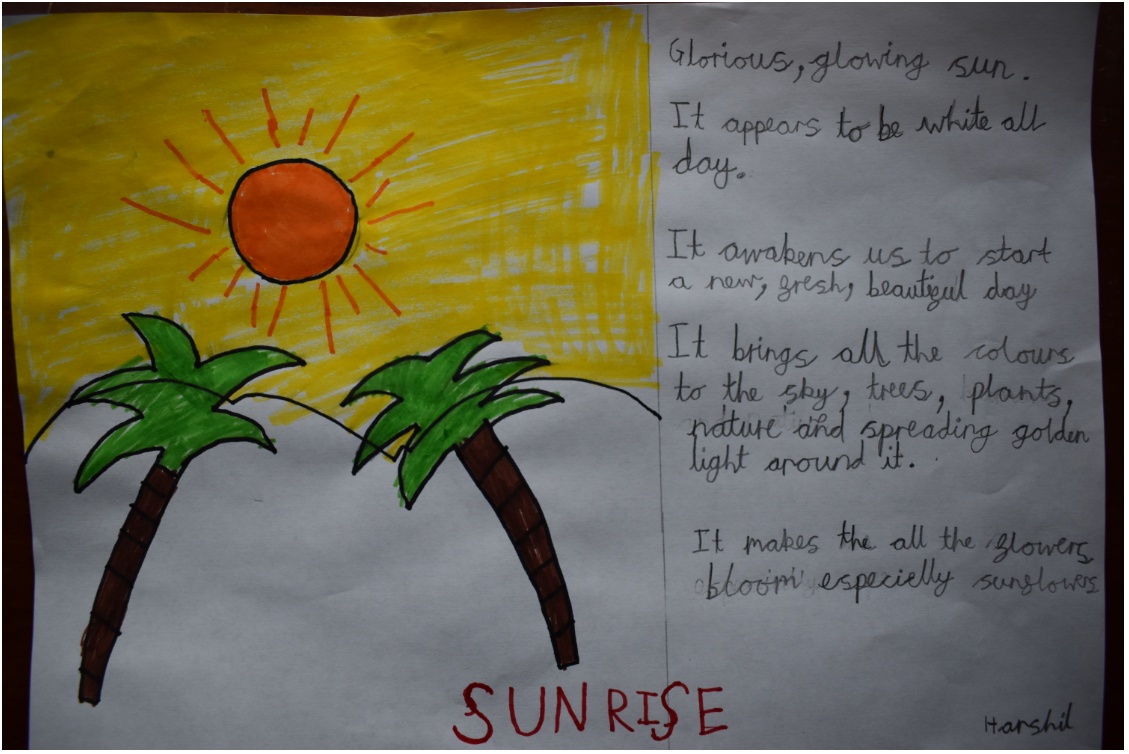 Glorious, glowing sun.
It appears to be white all
day.
It awakens us to start
a new, fresh, beautiful day
It brings all the colours
to the sky, trees, plants,
nature and spreading golden
light around it.
It makes the all the flowers
bloom especielly sunflowers
SUNRISE
Harshil